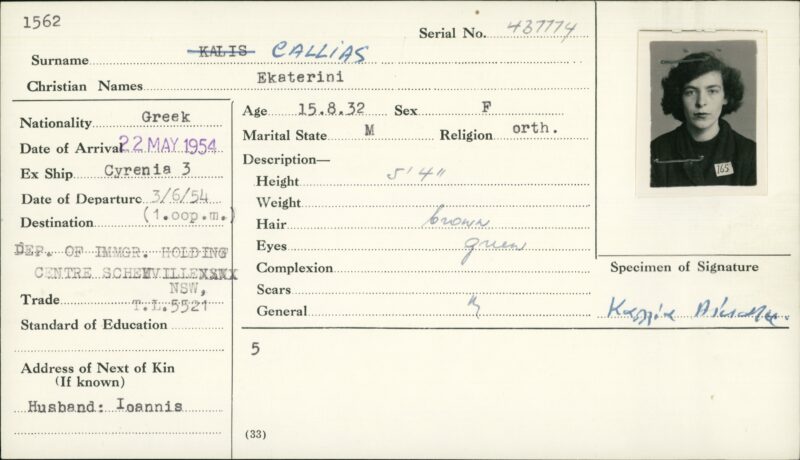 1562
Serial No. 437774
Surname KALIS CALLIAS
Christian Names Ekaterini
Nationality Greek
Date of Arrival 22 MAY 1954
Ex Ship Cyrenia 3
Date of Departure 3/6/54
(1.oop.m.)
Destination
DEP. OF IMMGR. HOLDING
CENTRE SCHEYVILLEXXXX
NSW,
Trade T.L.5521
Standard of Education
Address of Next of Kin
(If known)
Husband: Ioannis
Age 15.8.32 Sex F
Marital State M Religion orth.
Description—
Height 5' 4"
Weight
Hair brown
Eyes green
Complexion
Scars
General
5
(33)
165
Specimen of Signature